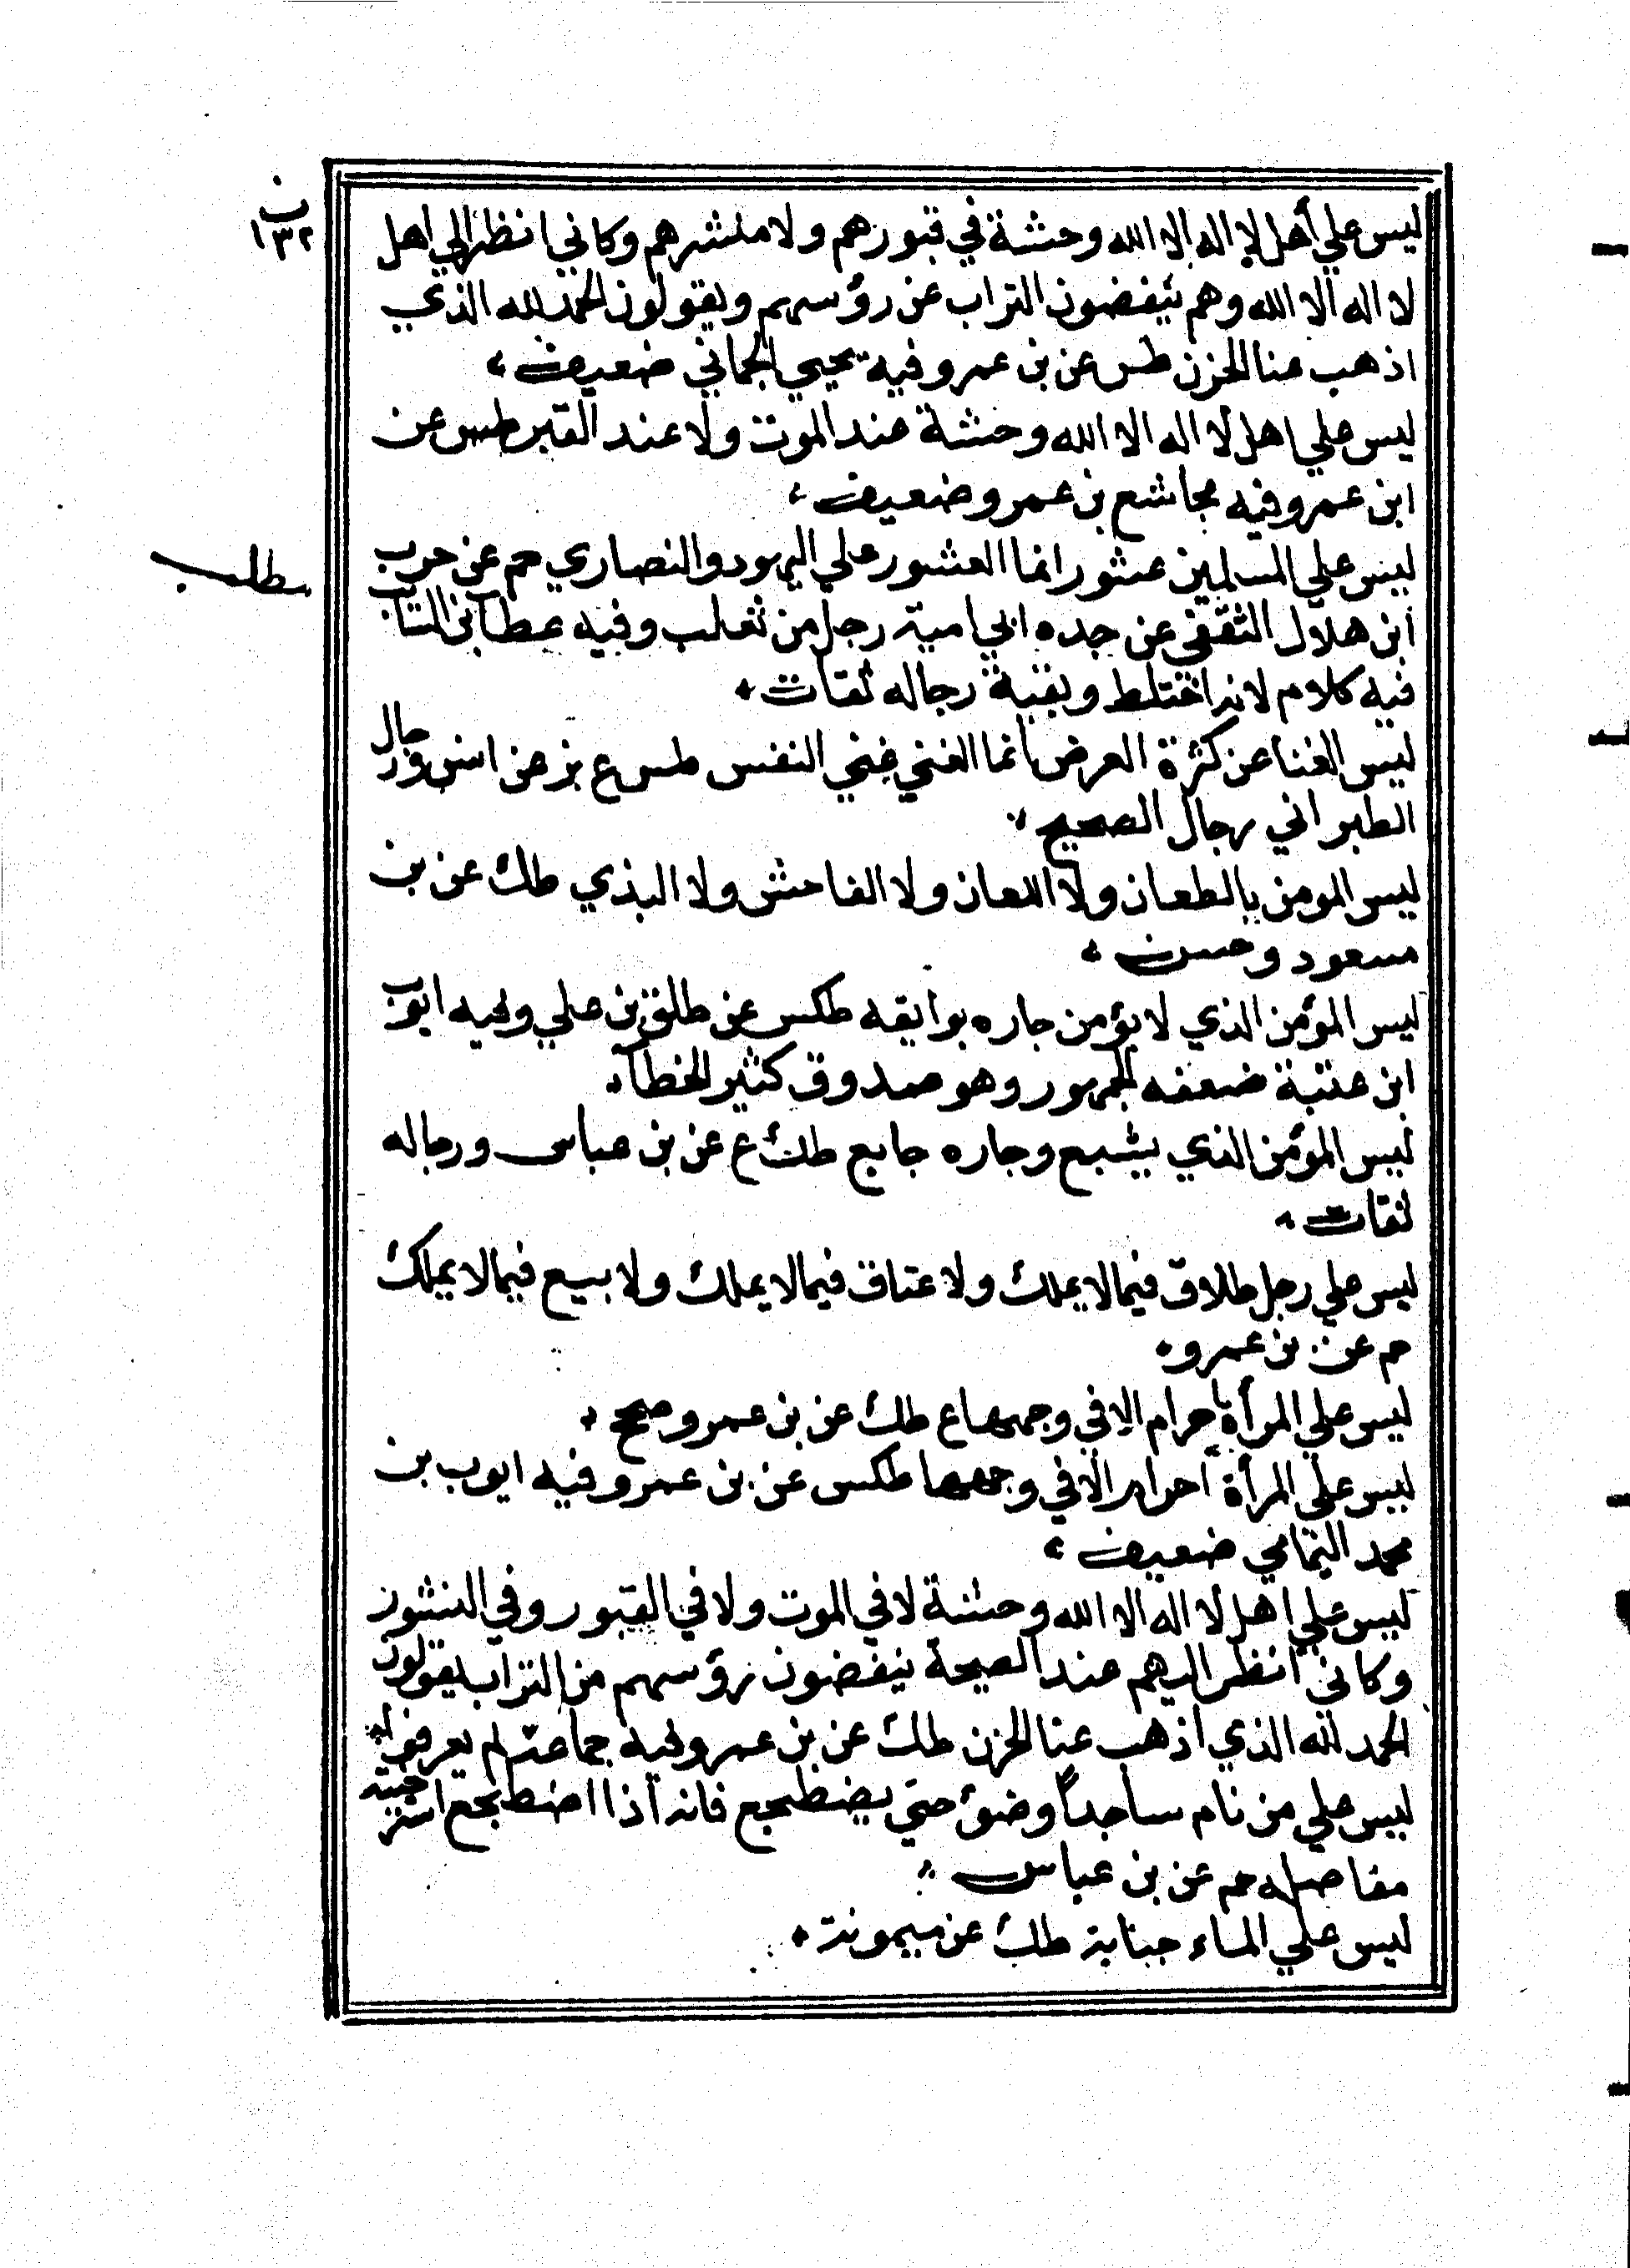 ب
١٣٢
ليس علي أهل لا اله الا الله وحشة في قبورهم ولا منشرهم وكاني انظر الي اهل
لا اله الا الله وهم ينفضون التراب عن رؤسهم ويقولون الحمد لله الذي
اذهب عنا الحزن طس عن بن عمر وفيه يحيي الحماني ضعيف
ليس علي اهل لا اله الا الله وحشة عند الموت ولا عند القبر طس عن
ابن عمر وفيه مجاشع بن عمرو ضعيف
ليس علي المسلمين عشور انما العشور علي اليهود والنصاري حم عن حرب
مطلب
ابن هلال الثقفي عن جده ابي امية رجل من ثعلب وفيه عطا بن السايب
فيه كلام لانه اختلط وبقية رجاله ثقات
ليس الغنا عن كثرة العرض انما الغني غني النفس طس ع بز عن انس ورجال
الطبراني رجال الصحيح
ليس المومن بالطعان ولا اللعان ولا الفاحش ولا البذي طك عن بن
مسعود وحسن
ليس المؤمن الذي لا يؤمن جاره بوايقه طكس عن طلق بن علي وفيه ايوب
ابن عتبة ضعفه الجمهور وهو صدوق كثير الخطأ
ليس المؤمن الذي يشبع وجاره جايع طك ع عن بن عباس ورجاله
ثقات
ليس علي رجل طلاق فيما لا يملك ولا عتاق فيما لا يملك ولا بيع فيما لا يملك
حم عن بن عمرو
ليس علي المرأة احرام الا في وجهها ع طك عن بن عمر وصحح
ليس علي المرأة احرام الا في وجهها طكس عن بن عمر وفيه ايوب بن
محمد اليمامي ضعيف
ليس علي اهل لا اله الا الله وحشة لا في الموت ولا في القبور وفي النشور
وكاني انظر اليهم عند الصيحة ينفضون رؤسهم من التراب يقولون
الحمد لله الذي اذهب عنا الحزن طك عن بن عمر وفيه جماعة لم يعرفوا
ليس علي من نام ساجداً وضؤ حتي يضطجع فانه اذا اضطجع استرخيت
مفاصله حم عن بن عباس
ليس علي الماء جنابة طك عن ميمونة